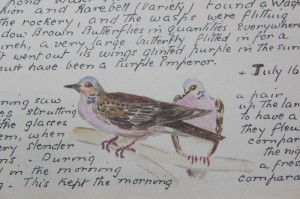 and Harebell (Variety) Found a Wasp
the rockery, and the wasps were flitting
dow Brown Butterflies in quantities everywhere
unch, a very large butterfly flitted in for a
t went out its wings glinted purple in the sun
ust have been a Purple Emperor.
+ July 16
rning saw
es strutting
the glasses
em, when
ery slender
ns. - During
d in the morning
g - This kept the morning
a pair,
up the lan
to have a
they flew
compar
the nig
a fres
compara